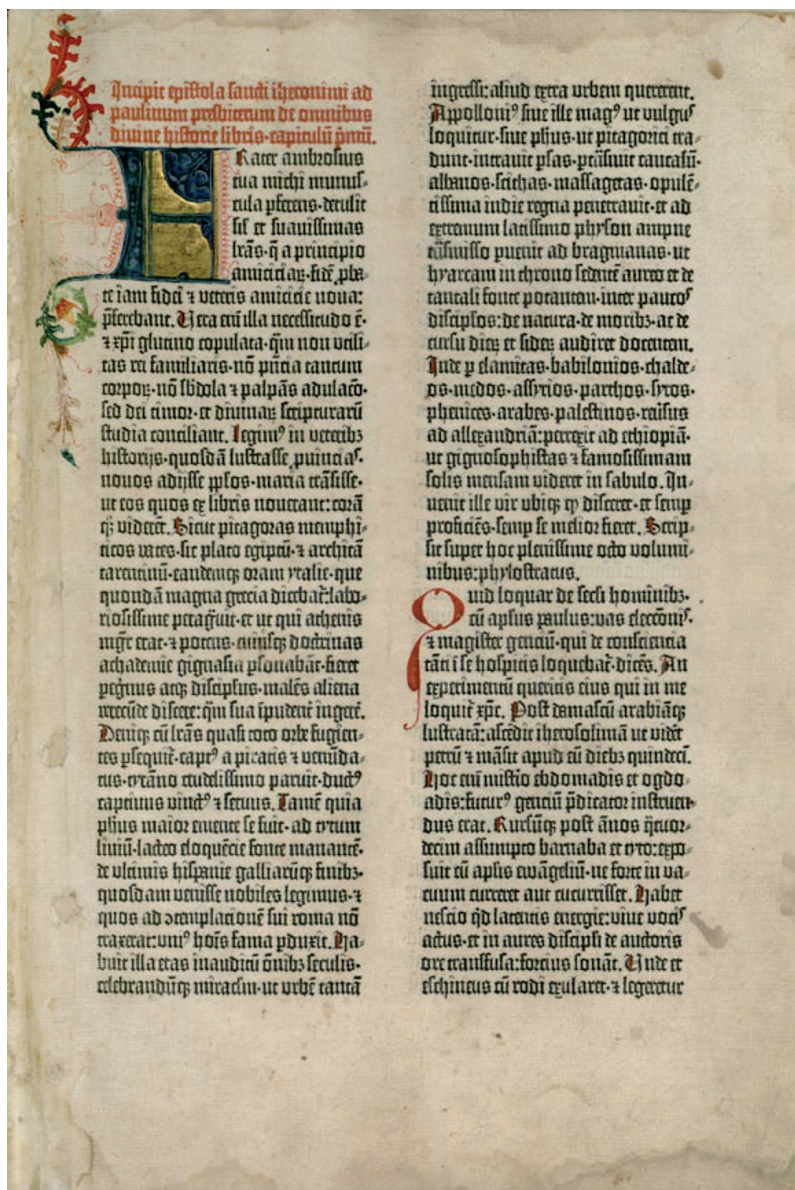 Incipit epistola sancti iheronimi ad
paulinum presbiterum de omnibus
divine historie libris·capitulū p̄mū.
Frater ambrosius
tua michi munus-
cula ꝑferens·detulit
sił et suavissimas
lr̄as·q̄ a principio
amiciciaꝝ·fidē ꝓba-
te iam fidei ⁊ veteris amicicie nova:
p̄ferebant. Vera em̄ illa necessitudo ē·
⁊ xp̄i glutino copulata·q̄m non utili-
tas rei familiaris·nō pn̄cia tantum
corpoꝝ·nō sb̄dola ⁊ palpās adulaco·
sed dei timor·et divinaꝝ scripturarū
studia conciliant. Legimꝰ in veteribꝫ
historijs·quosdā lustrasse ꝓuinciaˢ·
novos adijsse ppłos·maria trāsisse·
ut eos quos ex libris noverant: corā
qꝫ viderēt. Sicut pitagoras memphi-
ticos vates·sic plato egiptū·⁊ architā
tarentinū·eandemqꝫ oram ytalie·que
quondā magna grecia dicebat̄: labo-
riosissime peragr̄uit·et ut qui athenis
mgr̄ erat·⁊ potens·cuiusqꝫ doctrinas
achademie gignasia ꝑsonabāt·fieret
peg̓nus atqꝫ discipłus·malēs aliena
verecūde discere: q̄m sua īpudent̄ ingerē.
Deniqꝫ cū lr̄as quasi toto orbe fugien-
tes ꝑsequit̄·captꝰ a piratis ⁊ venūda-
tus·tyrāno crudelissimo paruit·ductꝰ
captivus vinctꝰ ⁊ servus. Tamē quia
ph̄us maior emente se fuit·ad tytum
liviū·lacteo eloquēcie fonte manantē·
de ultimis hispanie galliarūqꝫ finibꝫ·
quosdam venisse nobiles legimus·⁊
quos ad ɔtemplacionē sui roma nō
traxerat: uniꝰ hoīs fama ꝑduxit. Ha-
buit illa etas inauditū oīnibꝫ seculis·
celebrandūqꝫ miraclm̄·ut urbē tantā
ingressi: aliud extra urbem quererent.
Appolloniꝰ sive ille magꝰ ut vulguˢ
loquitur·sive ph̄us·ut pitagorici tra-
dunt·intravit ꝑsas·ptrāsivit caucasū·
albanos·scithas·massagetas·opulē-
tissima indie regna penetravit·et ad
extremum latissimo physon ampne
trāsmisso ꝑvenit ad bragmanas·ut
hyarcam in throno sedentē aureo et de
tantali fonte potantem·inter paucoˢ
discipłos: de natura·de moribꝫ·ac de
cursu dieꝝ et sideꝝ audiret docentem.
Inde ꝑ elamitas·babilonios·chalde-
os·medos·assyrios·parthos·syros·
phenices·arabes·palestinos·reṽsus
ad allexandriā: perrexit ad ethiopiā·
ut gignosophistas ⁊ famosissimam
solis mensam videret in sabulo. In-
venit ille vir ubiqꝫ qđ disceret·et semꝑ
proficiēs·semꝑ se melior fieret. Scrip-
sit super hoc plenissime octo volumi-
nibus: phylostratus.
Quid loquar de secłi hominibꝫ·
cū apłus paulus: vas eleccōniˢ·
⁊ magister genciū·qui de consciencia
tāti ī se hospitis loquebat̄·dicēs. An
experimentū queritis eius qui in me
loquit̄ xp̄c. Post damascū arabiāqꝫ
lustratā: ascēdit iherosolimā ut vidēt
petrū ⁊ māsit apud eū diebꝫ quindecī.
Hoc em̄ mist̓io ebdomadis et ogdo-
adis: futurꝰ genciū p̄dicator instruen-
dus erat. Rursūqꝫ post ānos q̄tuor-
decim assumpto barnaba et tyto: expo-
suit cū apłis ewāgeliū·ne forte in va-
cuum curreret aut cucurrisset. Habet
nescio qđ latentis energie: vive vociˢ
actus·et in aures discipłi de auctoris
ore transfusa: forcius sonāt. Unde et
eschineus cū rodi exularet·⁊ legeretur